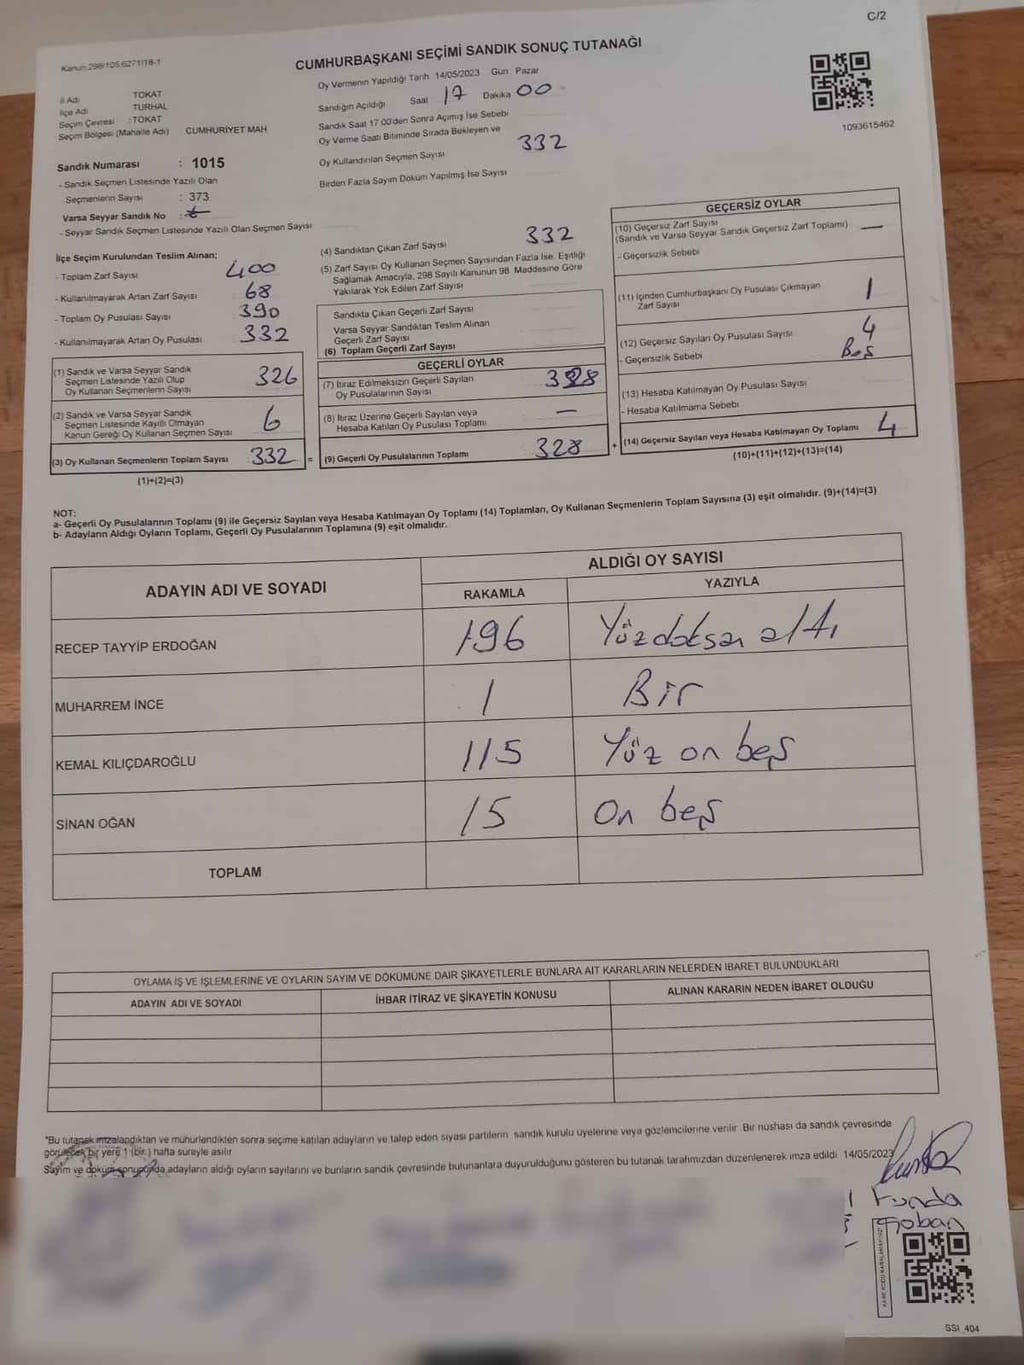 C/2
Kanun 298/105.6271/18-1
CUMHURBAŞKANI SEÇİMİ SANDIK SONUÇ TUTANAĞI
İl Adı : TOKAT
İlçe Adı TURHAL
Seçim Çevresi : TOKAT
Seçim Bölgesi (Mahalle Adı) CUMHURİYET MAH
Sandık Numarası : 1015
- Sandık Seçmen Listesinde Yazılı Olan
Seçmenlerin Sayısı : 373
Varsa Seyyar Sandık No :
- Seyyar Sandık Seçmen Listesinde Yazılı Olan Seçmen Sayısı
Oy Vermenin Yapıldığı Tarih 14/05/2023 Gün: Pazar
Sandığın Açıldığı Saat 17 Dakika 00
Sandık Saat 17.00'den Sonra Açımış İse Sebebi
Oy Verme Saati Bitiminde Sırada Bekleyen ve
Oy Kullandırılan Seçmen Sayısı 332
Birden Fazla Sayım Döküm Yapılmış İse Sayısı
1093615462
İlçe Seçim Kurulundan Teslim Alınan;
- Toplam Zarf Sayısı 400
- Kullanılmayarak Artan Zarf Sayısı 68
- Toplam Oy Pusulası Sayısı 390
- Kullanılmayarak Artan Oy Pusulası 332
(1) Sandık ve Varsa Seyyar Sandık
Seçmen Listesinde Yazılı Olup
Oy Kullanan Seçmenlerin Sayısı 326
(2) Sandık ve Varsa Seyyar Sandık
Seçmen Listesinde Kayıtlı Olmayan
Kanun Gereği Oy Kullanan Seçmen Sayısı 6
(3) Oy Kullanan Seçmenlerin Toplam Sayısı 332 =
(1)+(2)=(3)
(4) Sandıktan Çıkan Zarf Sayısı 332
(5) Zarf Sayısı Oy Kullanan Seçmen Sayısından Fazla İse, Eşitliği
Sağlamak Amacıyla, 298 Sayılı Kanunun 98. Maddesine Göre
Yakılarak Yok Edilen Zarf Sayısı
Sandıkta Çıkan Geçerli Zarf Sayısı
Varsa Seyyar Sandıktan Teslim Alınan
Geçerli Zarf Sayısı
(6) Toplam Geçerli Zarf Sayısı
GEÇERLİ OYLAR
(7) İtiraz Edilmeksizin Geçerli Sayılan
Oy Pusulalarının Sayısı 328
(8) İtiraz Üzerine Geçerli Sayılan veya
Hesaba Katılan Oy Pusulası Toplamı —
(9) Geçerli Oy Pusulalarının Toplamı 328 +
GEÇERSİZ OYLAR
(10) Geçersiz Zarf Sayısı
(Sandık ve Varsa Seyyar Sandık Geçersiz Zarf Toplamı) —
- Geçersizlik Sebebi
(11) İçinden Cumhurbaşkanı Oy Pusulası Çıkmayan
Zarf Sayısı 1
(12) Geçersiz Sayılan Oy Pusulası Sayısı 4
- Geçersizlik Sebebi Boş
(13) Hesaba Katılmayan Oy Pusulası Sayısı
- Hesaba Katılmama Sebebi
(14) Geçersiz Sayılan veya Hesaba Katılmayan Oy Toplamı 4
(10)+(11)+(12)+(13)=(14)
NOT:
a- Geçerli Oy Pusulalarının Toplamı (9) ile Geçersiz Sayılan veya Hesaba Katılmayan Oy Toplamı (14) Toplamları, Oy Kullanan Seçmenlerin Toplam Sayısına (3) eşit olmalıdır. (9)+(14)=(3)
b- Adayların Aldığı Oyların Toplamı, Geçerli Oy Pusulalarının Toplamına (9) eşit olmalıdır.
ADAYIN ADI VE SOYADI
ALDIĞI OY SAYISI
RAKAMLA YAZIYLA
RECEP TAYYİP ERDOĞAN 196 Yüzdoksan altı
MUHARREM İNCE 1 Bir
KEMAL KILIÇDAROĞLU 115 Yüz on beş
SİNAN OĞAN 15 On beş
TOPLAM
OYLAMA İŞ VE İŞLEMLERİNE VE OYLARIN SAYIM VE DÖKÜMÜNE DAİR ŞİKAYETLERLE BUNLARA AİT KARARLARIN NELERDEN İBARET BULUNDUKLARI
ADAYIN ADI VE SOYADI İHBAR İTİRAZ VE ŞİKAYETİN KONUSU ALINAN KARARIN NEDEN İBARET OLDUĞU
*Bu tutanak imzalandıktan ve mühürlendikten sonra seçime katılan adayların ve talep eden siyasi partilerin sandık kurulu üyelerine veya gözlemcilerine verilir. Bir nüshası da sandık çevresinde
görülecek bir yere 1 (bir ) hafta süreyle asılır.
Sayım ve döküm sonucunda adayların aldığı oyların sayılarını ve bunların sandık çevresinde bulunanlara duyurulduğunu gösteren bu tutanak tarafımızdan düzenlenerek imza edildi. 14/05/2023
Funda
Çoban
SSI_404